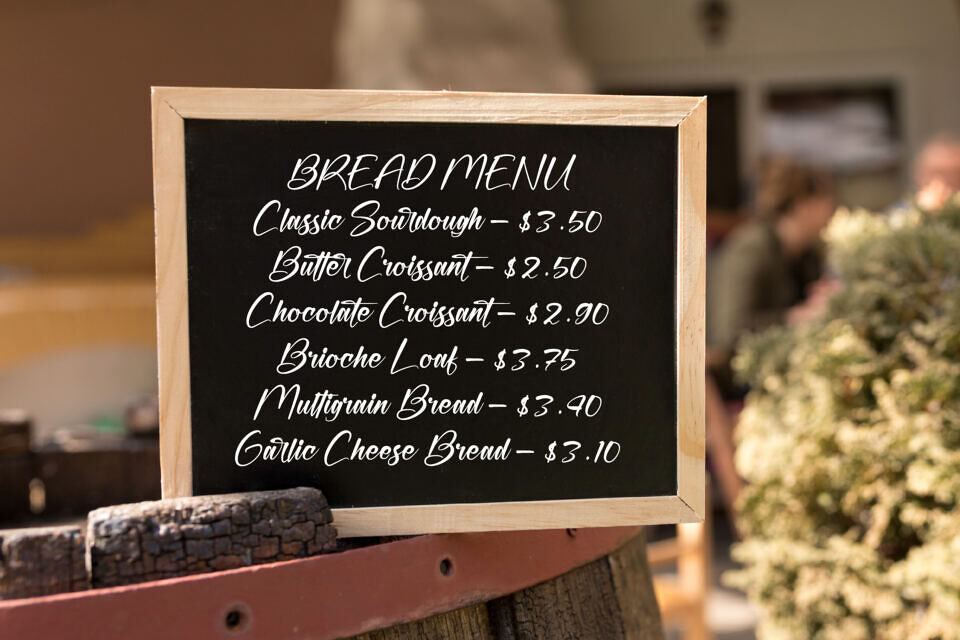 BREAD MENU
Classic Sourdough – $3.50
Butter Croissant – $2.50
Chocolate Croissant – $2.90
Brioche Loaf – $3.75
Multigrain Bread – $3.40
Garlic Cheese Bread – $3.10